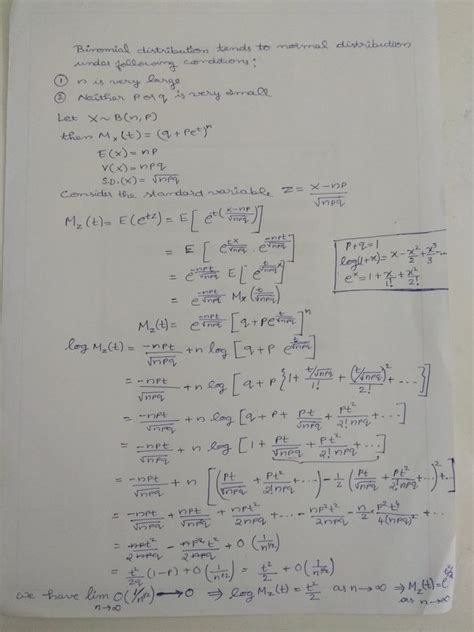 Binomial distribution tends to normal distribution
under following conditions:
① n is very large
② Neither p or q is very small
Let X ~ B(n, p)
then Mₓ(t) = (q + pe^t)^n
E(x) = np
V(x) = npq
S.D.(x) = √npq
Consider the standard variable Z = (x - np)/√npq
M_Z(t) = E(e^{tZ}) = E[e^{t((x-np)/√npq)}]
= E[e^{tx/√npq} . e^{-npt/√npq}]
= e^{-npt/√npq} E[e^{(t/√npq)x}]
= e^{-npt/√npq} Mₓ(t/√npq)
M_Z(t) = e^{-npt/√npq} [q + p e^{t/√npq}]^n
p + q = 1
log(1+x) = x - x²/2 + x³/3 - ...
e^x = 1 + x/1! + x²/2!
log M_Z(t) = -npt/√npq + n log[q + p e^{t/√npq}]
= -npt/√npq + n log[q + p{1 + (t/√npq)/1! + (t/√npq)²/2! + ...}]
= -npt/√npq + n log[q + p + pt/√npq + pt²/2!npq + ...]
= -npt/√npq + n log[1 + pt/√npq + pt²/2!npq + ...]
= -npt/√npq + n[(pt/√npq + pt²/2!npq + ...) - 1/2(pt/√npq + pt²/2!npq + ...)² + ...]
= -npt/√npq + npt/√npq + npt²/2npq + ... - np²t²/2npq - n/2 × p²t⁴/4(npq)² + ...
= npt²/2npq - np²t²/2npq + O(1/n^{1/2})
= t²/2q (1-p) + O(1/n^{1/2}) = t²/2 + O(1/n^{1/2})
we have lim n→∞ O(1/n^{1/2}) → 0 ⇒ log M_Z(t) = t²/2 as n→∞ ⇒ M_Z(t) = e^{t²/2} as n→∞